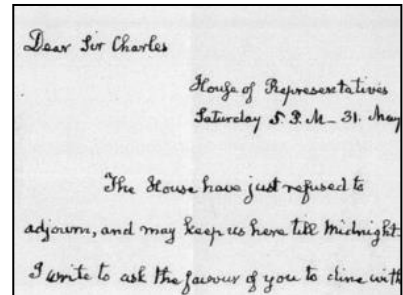 Dear Sir Charles
House of Representatives
Saturday 5 P.M - 31. May
The House have just refused to
adjourn, and may keep us here till Midnight.
I write to ask the favour of you to dine with